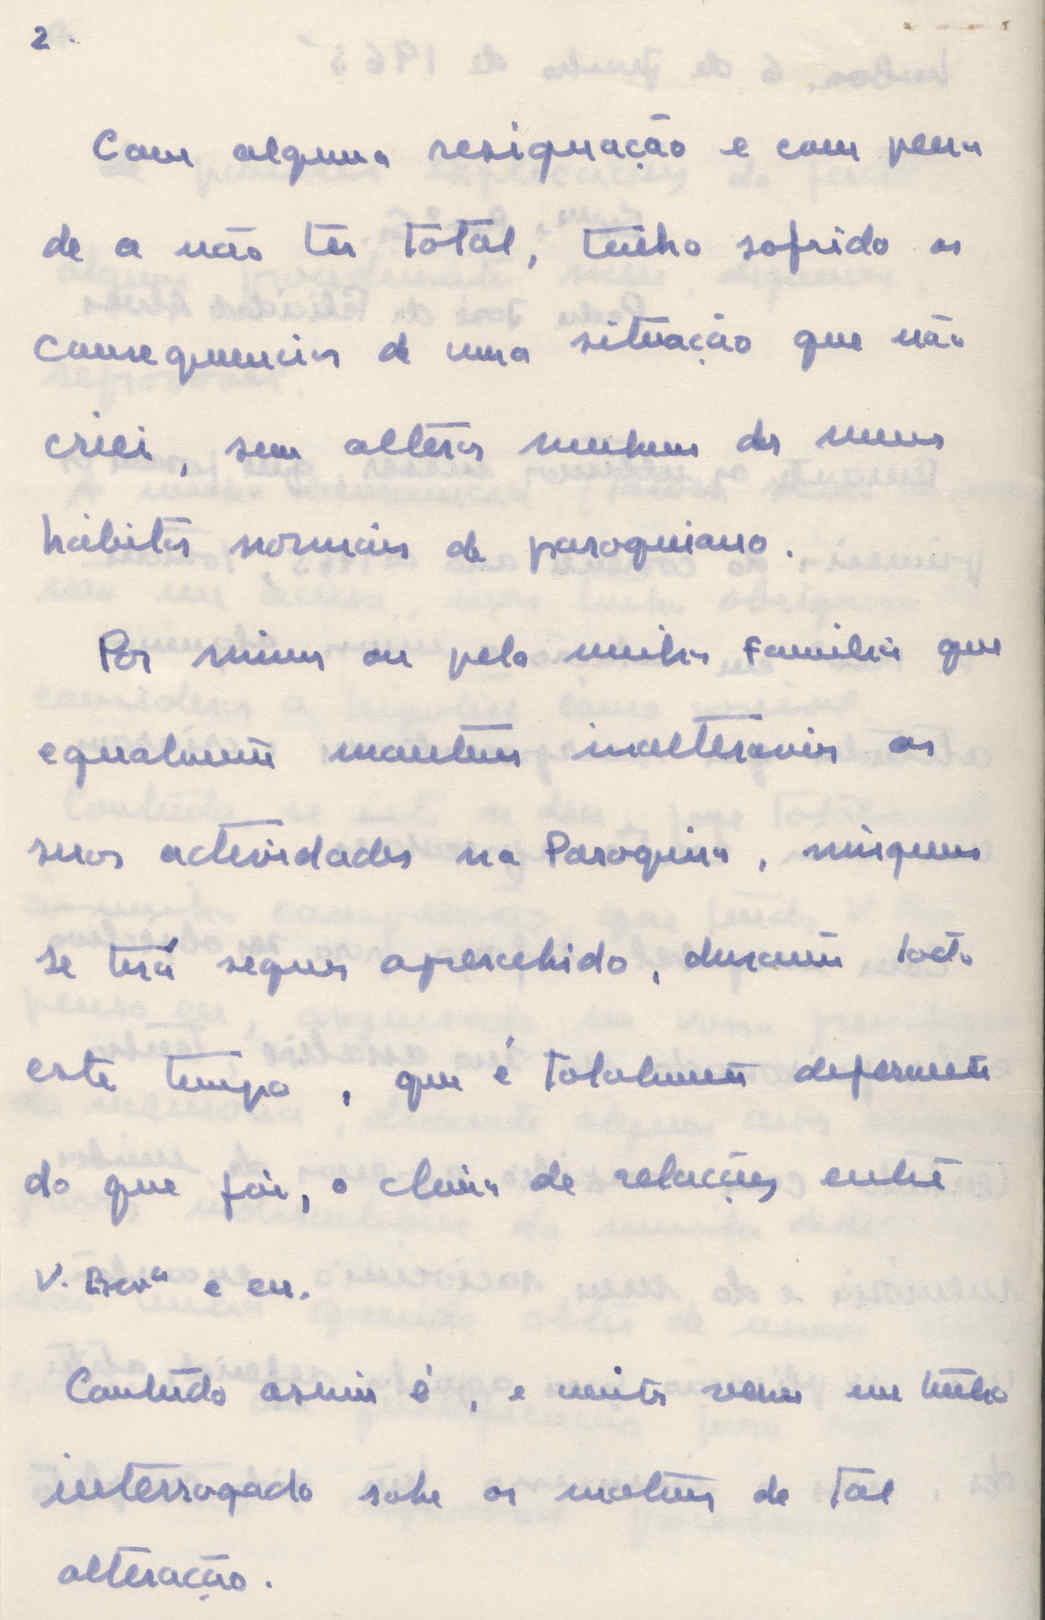 2.
Com alguma resignação e com pena
de a não ter total, tenho sofrido as
consequencias de uma situação que não
criei, sem alterar nenhum dos meus
hábitos normais de paroquiano.
Por mim ou pela minha Familia que
egualmente mantem inalteraveis as
suas actividades na Paroquia, ninguem
se terá sequer apercebido, durante todo
este tempo, que é totalmente deferente
do que foi, o clima de relações entre
V. Exª e eu.
Contudo assim é, e muitas vezes me tenho
interrogado sobre os motivos de tal
alteração.